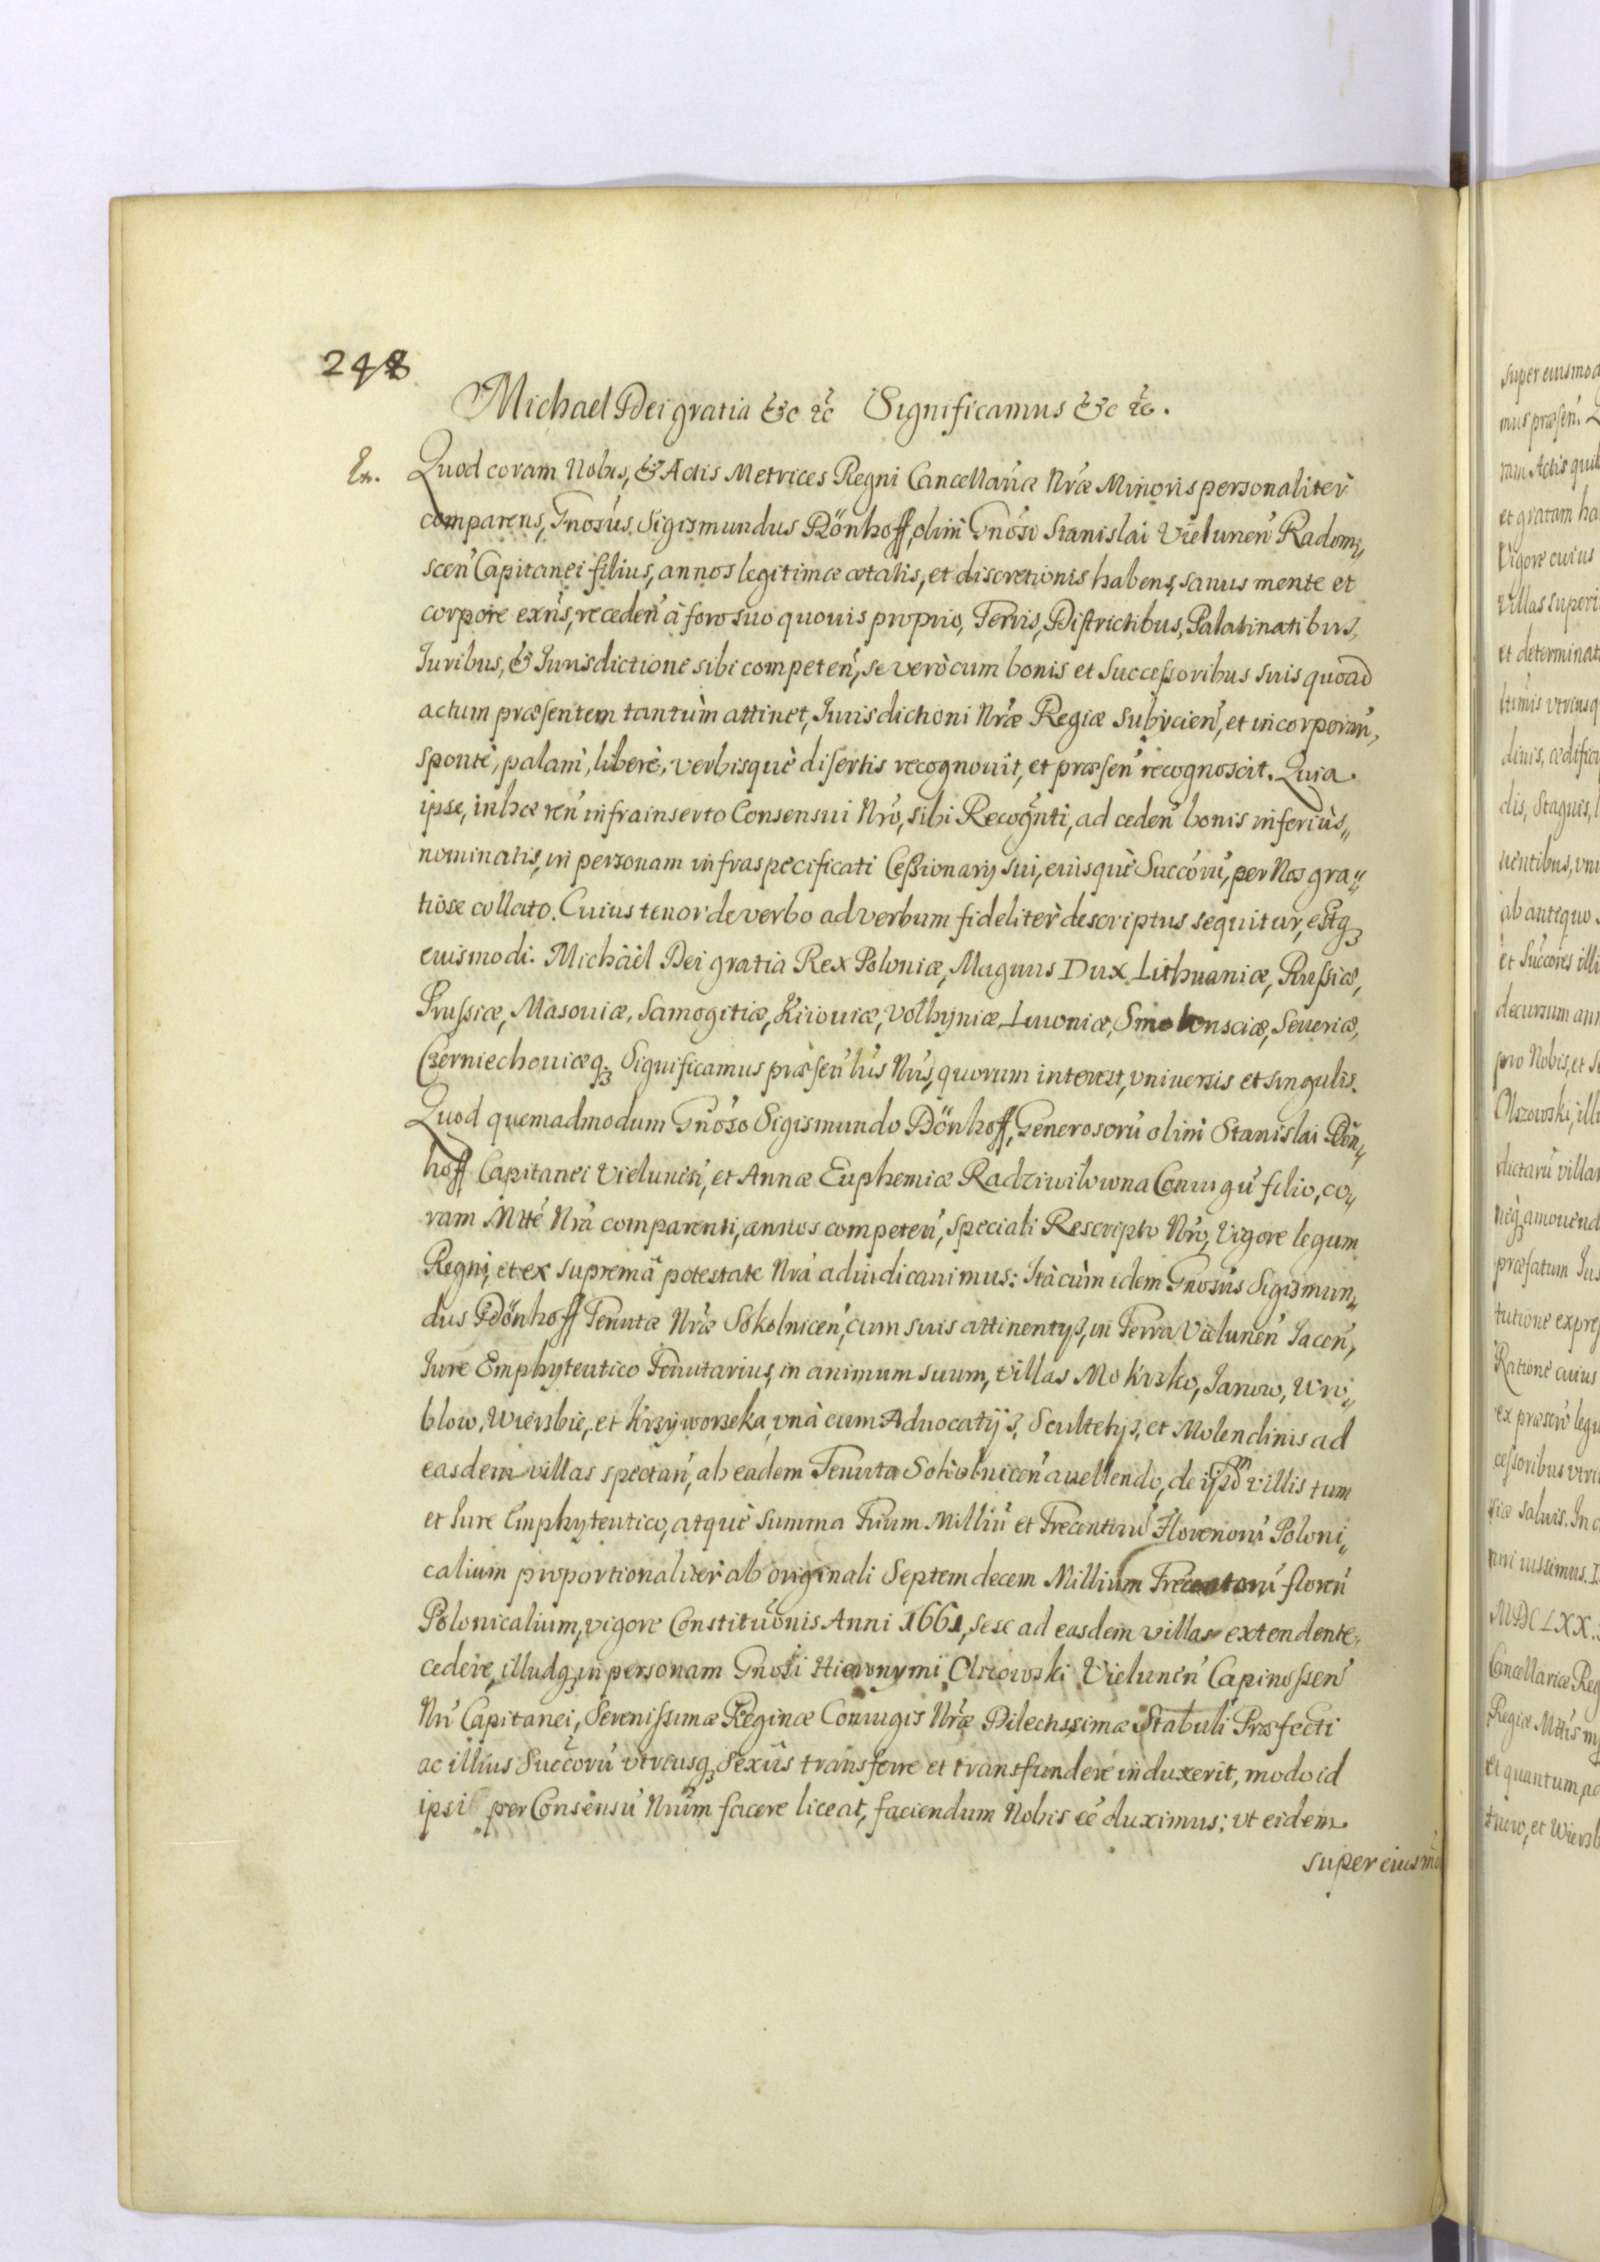 248
Michael Dei gratia &c &c Significamus &c &c.
En. Quod coram Nobis, & Actis Metrices Regni Cancellariæ Nræ Minoris personaliter
comparens, Gnosus Sigismundus Dönhoff, olim Gnosi Stanislai Vielunen Radom„
scen Capitanei filius, annos legitimæ ætatis, et discretionis habens, sanus mente et
corpore exns, receden à foro suo quouis proprio, Terris, Districtibus, Palatinatibus,
Iuribus, & Iurisdictione sibi competen, se verò cum bonis et Successoribus suis quoad
actum præsentem tantùm attinet, Jurisdictioni Nræ Regiæ Subycien, et incorporan,
spontè, palam, liberè, verbisquè disertis recognouit, et præsen recognoscit. Quia
ipse, inhæren infrainserto Consensui Nro, sibi Recognti, ad ceden bonis inferiùs„
nominatis, in personam infraspecificati Cessionary sui, eiusquè Succorũ, per Nos gra„
tiose collato. Cuius tenor de verbo ad verbum fideliter descriptus sequitur, estq3
eiusmodi. Michaël Dei gratia Rex Poloniæ, Magnus Dux Lithuaniæ, Russiæ,
Prussiæ, Masouiæ, Samogitiæ, Kiiouiæ, Volhyniæ, Liuoniæ, Smolensciæ, Seueriæ,
Czerniechouiæq3 Significamus præsen lus Nris, quorum interest, vniuersis et singulis.
Quod quemadmodum Gnoso Sigismundo Dönhoff, Generosorũ olim Stanislai Dön„
hoff Capitanei Vielunen, et Annæ Euphemiæ Radziwiłowna Coniugũ filio, co„
ram Mtte Nra comparenti, annos competen, speciali Rescripto Nro, Vigore legum
Regni, et ex supremâ potestate Nra adiudicauimus: Ità cùm idem Gnosus Sigismun„
dus Dönhoff Tenutæ Nræ Sokolnicen, cum suis attinentys, in Terra Vielunen Iacen,
Iure Emphyteutico Tenutarius, in animum suum, villas Mokrsko, Janow, Wro„
blow, Wierzbie, et Krzyworzeka, vnà cum Aduocatijs, Scultetys, et Molendinis ad
easdem villas spectan, ab eadem Tenuta Sokolnicen auellendo, de ijsdm villis tum
et Iure Emphyteutico, atquè Summa Trium Milliũ et Trecentorũ Florenorũ Poloni„
calium proportionaliter ab originali Septemdecem Millium Trecentorũ florenũ
Polonicalium, vigore Constituonis Anni 1661, sese ad easdem villas extendente
cedere, illudq3 in personam Gnosi Hieronymi Olszowski Vielunen Capinossen
Nri Capitanei, Serenissimæ Reginæ Coniugis Nræ Dilectissimæ Stabuli Præfecti
ac illius Succorũ vtriusq3 Sexûs transferre et transfundere induxerit, modo id
ipsi per Consensũ Nrum facere liceat, faciendum Nobis ee duximus; vt eidem
super eiusmo